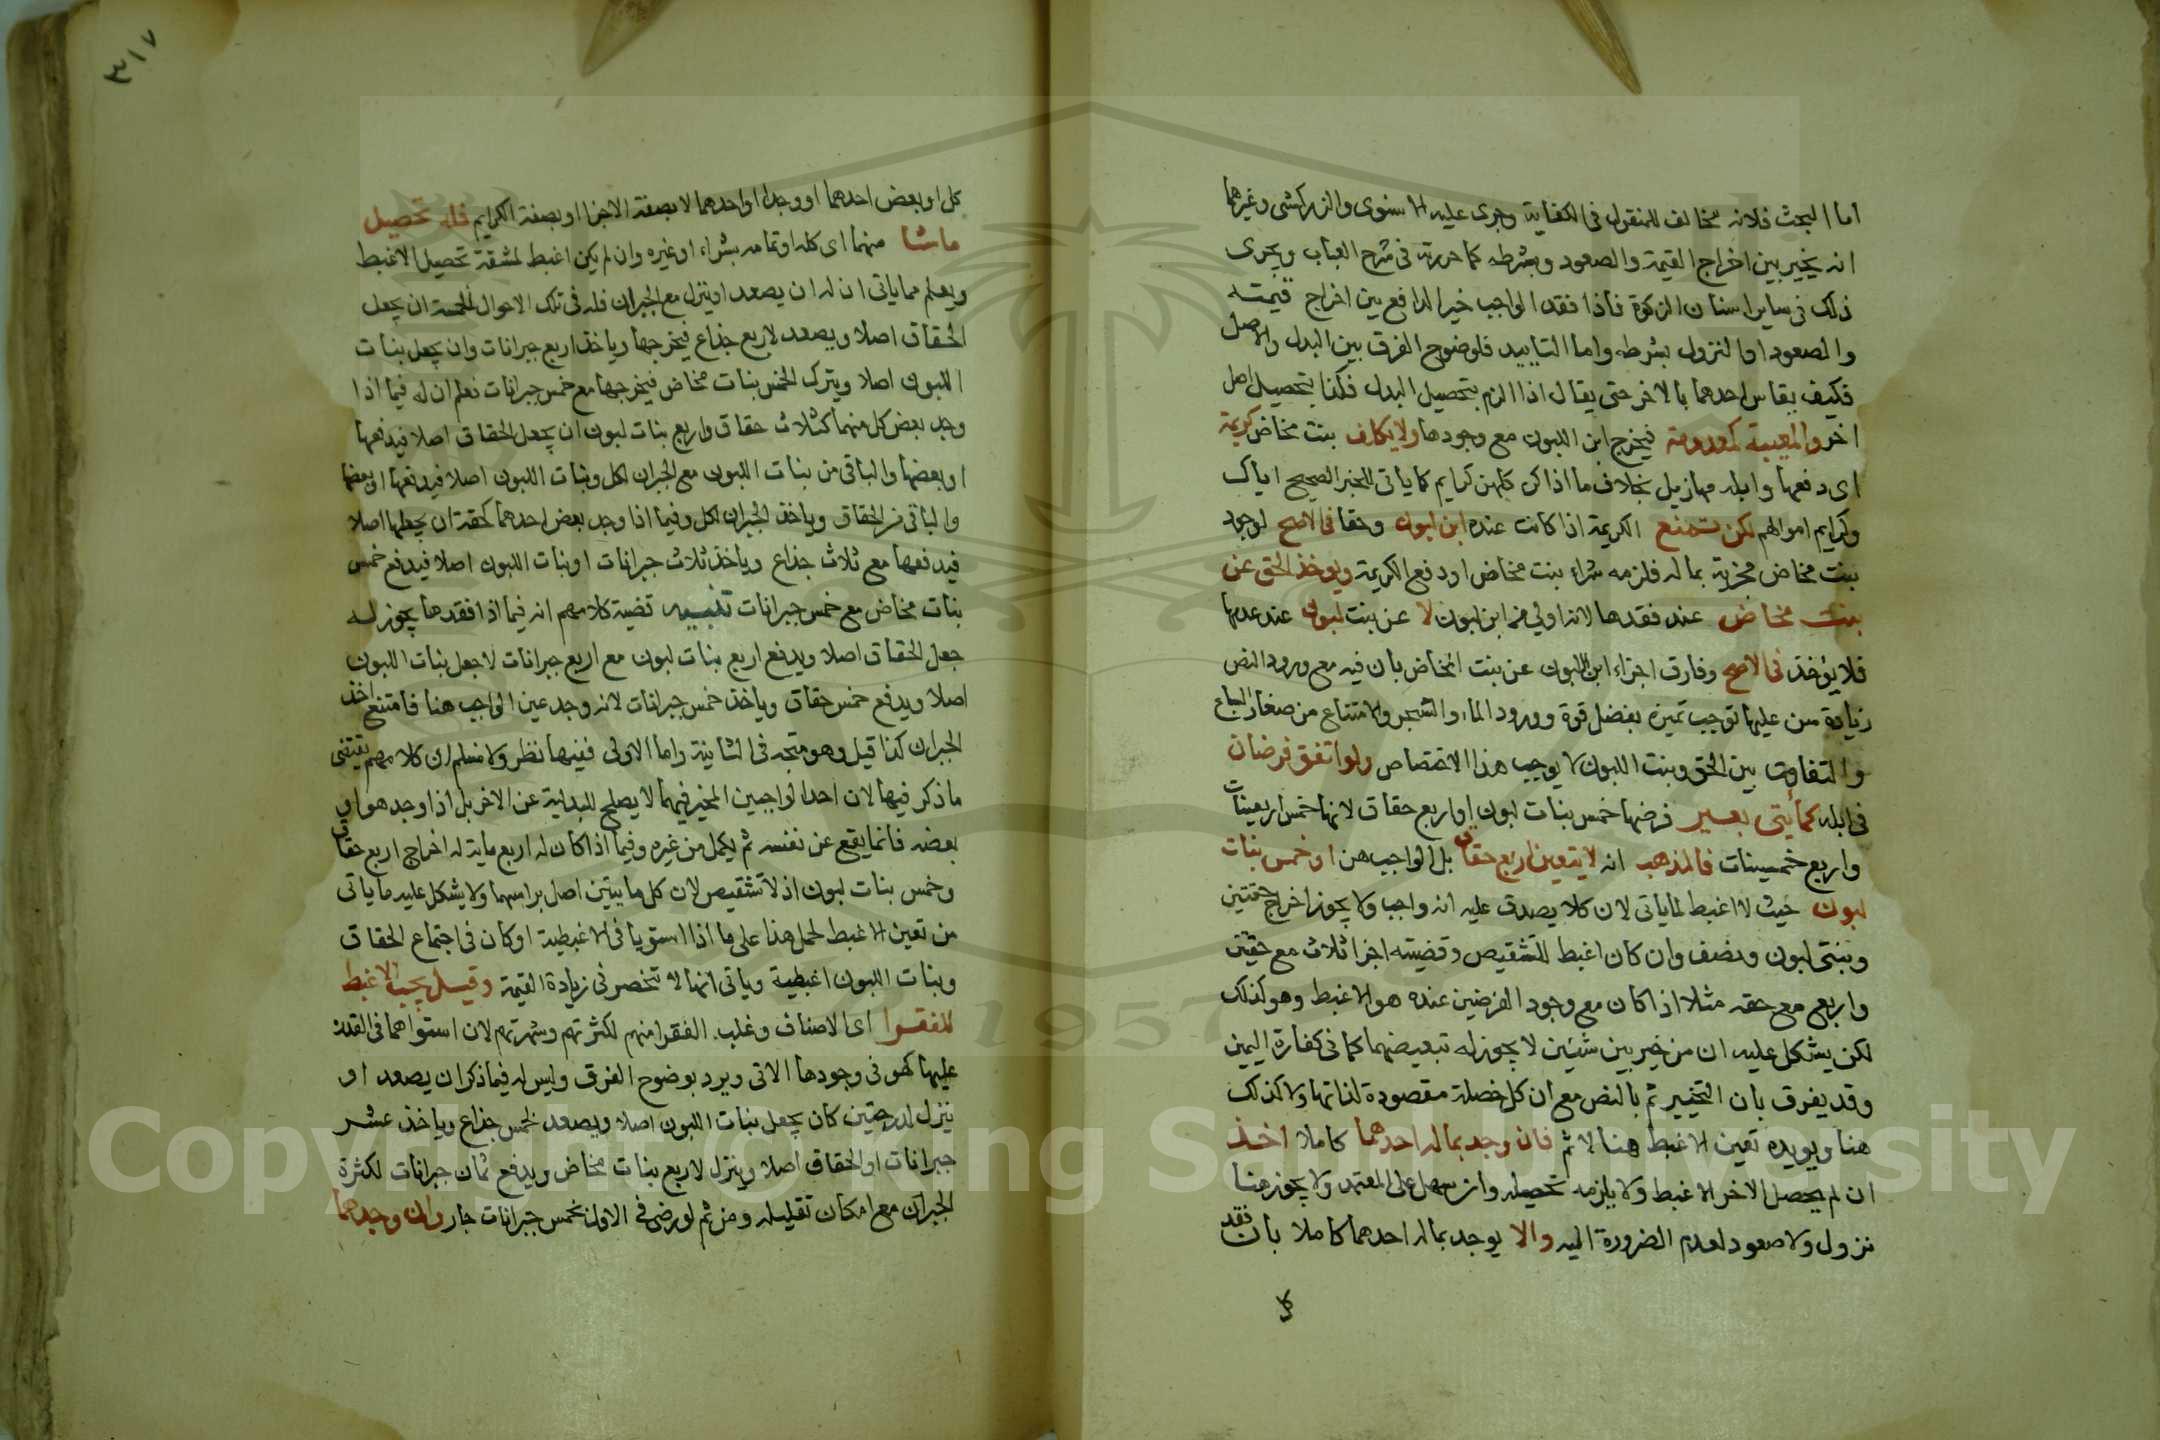 اما البحث فلانه مخالف للمنقول فى الكفاية وجرى عليه الاسنوى والزركشى وغيرهما
انه يخير بين اخراج القيمة والصعود وبشرطه كما حررته فى شرح العباب ويجرى
ذلك فى ساير اسنان الزكوة فاذا فقد الواجب خير الدافع بين اخراج قيمته
والصعود او النزول بشرطه واما التاييد فلوضوح الفرق بين البدل والاصل
فكيف يقاس احدهما بالاخر حتى يقال اذا الزم بتحصيل البدل فكذا بتحصيل اصل
اخر والمعيبة كمعدومة فيخرج ابن اللبون مع وجودها ولا يكلف بنت مخاض كريمة
اى دفعها وابله مهازيل بخلاف ما اذا كن كلهن كرايم كما ياتى للخبر الصحيح اياك
وكرايم اموالهم لكن تمنع الكريمة اذا كانت عنده ابن لبون وحقا فى الاصح لوجود
بنت مخاض مجزية بماله فلزمه شراء بنت مخاض او دفع الكريمة ويوخذ الحق عن
بنت مخاض عند فقدها لانه اولى من ابن لبون لا عن بنت لبون عند عدمها
فلا يؤخذ فى الاصح وفارق اجزاء ابن اللبون عن بنت المخاض بان فيه مع ورود النص
زيادة سن عليها توجب تميزه بفضل قوة وورود الماء والشجر والامتناع من صغار السباع
والتفاوت بين الحق وبنت اللبون لا يوجب هذا الاختصاص ولو اتفق فرضان
فى ابله كمأيتى بعير فرضها خمس بنات لبون او اربع حقاق لانها خمس اربعينات
واربع خمسينات فالمذهب انه لا يتعين اربع حقاق بل الواجب هن او خمس بنات
لبون حيث لا اغبط لما ياتى لان كلا يصدق عليه انه واجب ولا يجوز اخراج حقتين
وبنتى لبون ونصف وان كان اغبط للتشقيص وقضيته اجزا ثلاث مع حقتين
واربع مع حقه مثلا اذا كان مع وجود الفرضين عنده هو الاغبط وهو كذلك
لكن يشكل عليه ان من خير بين شيئين لا يجوز له تبعيضهما كما فى كفارة اليمين
وقد يفرق بان التخيير ثم بالنص مع ان كل خصلة مقصودة لذاتها ولا كذلك
هنا ويويده تعين الاغبط هنا لا ثم فان وجد بماله احدهما كاملا اخذ
ان لم يحصل الاخر الاغبط ولا يلزمه تحصيله وان سهل على المعتمد ولا يجوز هنا
نزول ولا صعود لعدم الضرورة اليه والا يوجد بماله احدهما كاملا بان فقد
كل
٣١٧
كل او بعض احدهما او وجدا او احدهما لا بصفة الاجزا او بصفة الكرايم فله تحصيل
ماشا منهما اى كله او تمامه بشراء او غيره وان لم يكن اغبط لمشقة تحصيل الاغبط
ويعلم مما ياتى ان له ان يصعد او ينزل مع الجبران فله فى تلك الاحوال الخمسة ان يجعل
الحقاق اصلا ويصعد لاربع جذاع فيخرجها وياخذ اربع جبرانات وان يجعل بنات
اللبون اصلا ويترك الخمس بنات مخاض فيخرجها مع خمس جبرانات فعلم ان له فيما اذا
وجد بعض كل منهما كثلاث حقاق واربع بنات لبون ان يجعل الحقاق اصلا فيدفعها
او بعضها والباقى من بنات اللبون مع الجبران لكل وبنات اللبون اصلا فيدفعها او بعضها
والباقى من الحقاق وياخذ الجبران لكل وفيما اذا وجد بعض احدهما كحقة ان يجعلها اصلا
فيدفعها مع ثلاث جذاع وياخذ ثلاث جبرانات او بنات اللبون اصلا فيدفع خمس
بنات مخاض مع خمس جبرانات تنبيه قضية كلامهم انه فيما اذا فقدها يجوز له
جعل الحقاق اصلا ويدفع اربع بنات لبون مع اربع جبرانات لا جعل بنات اللبون
اصلا ويدفع خمس حقاق وياخذ خمس جبرانات لانه وجد عين الواجب هنا فامتنع اخذ
الجبران كذا قيل وهو متجه فى الثانية واما الاولى ففيها نظر ولا نسلم ان كلامهم يقتضى
ما ذكر فيها لان احد الواجبين المخير فيهما لا يصلح للبدلية عن الاخر بل اذا وجد هو او
بعضه فانما يقع عن نفسه ثم يكمل من غيره وفيما اذا كان له اربع ماية له اخراج اربع حقاق
وخمس بنات لبون اذ لا تشقيص لان كل مايتين اصل براسهما ولا يشكل عليه ما ياتى
من تعين الاغبط لحمل هذا على ما اذا استويا فى الاغبطية او كان فى اجتماع الحقاق
وبنات اللبون اغبطية وياتى انها لا تنحصر فى زيادة القيمة وقيل يجب الاغبط
للفقرا اى الاصناف وغلب الفقرا منهم لكثرتهم وشهرتهم لان استواهما فى العدة
عليها كهو فى وجودها الاتى ويرد بوضوح الفرق وليس له فيما ذكر ان يصعد او
ينزل لدرجتين كان يجعل بنات اللبون اصلا ويصعد لخمس جذاع وياخذ عشر
جبرانات او الحقاق اصلا وينزل لاربع بنات مخاض ويدفع ثمان جبرانات لكثرة
الجبران مع امكان تقليله ومن ثم لو رضى فى الاولى بخمس جبرانات جاز وان وجدهما
Copyright © King Saud University
1957